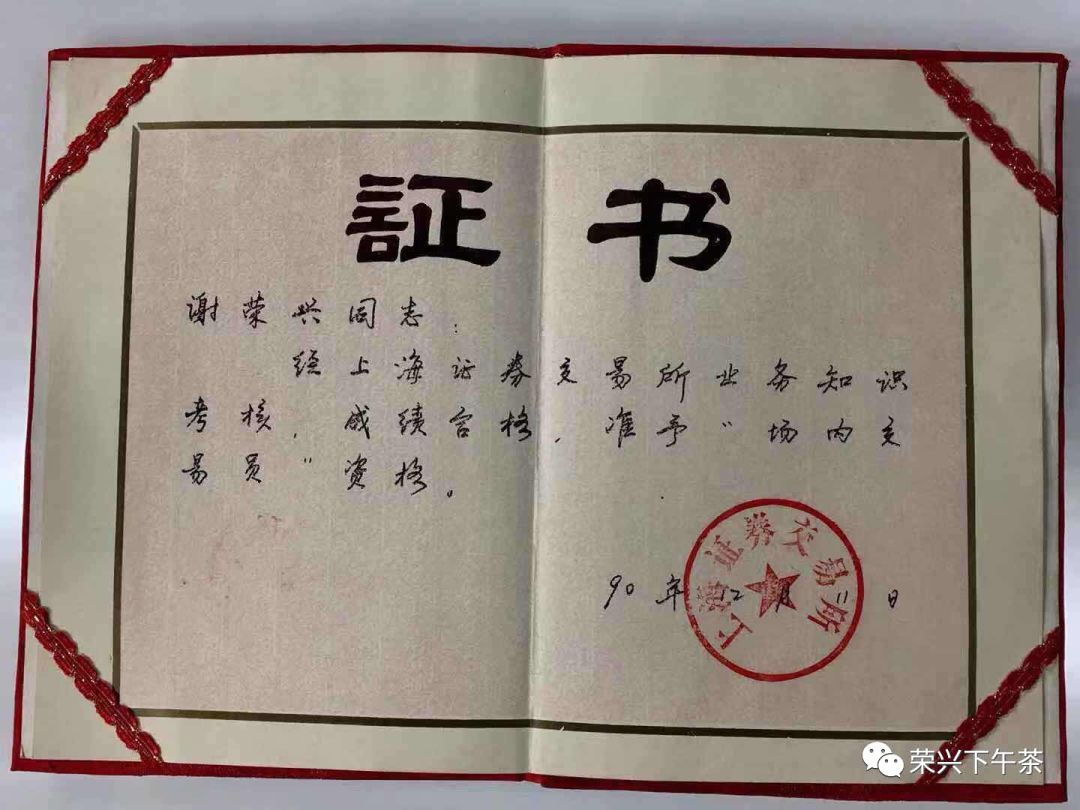 証书
谢荣兴同志：
经上海证券交易所业务知识
考核，成绩合格，准予"场内交
易员"资格。
上海证券交易所
90年12月11日
荣兴下午茶